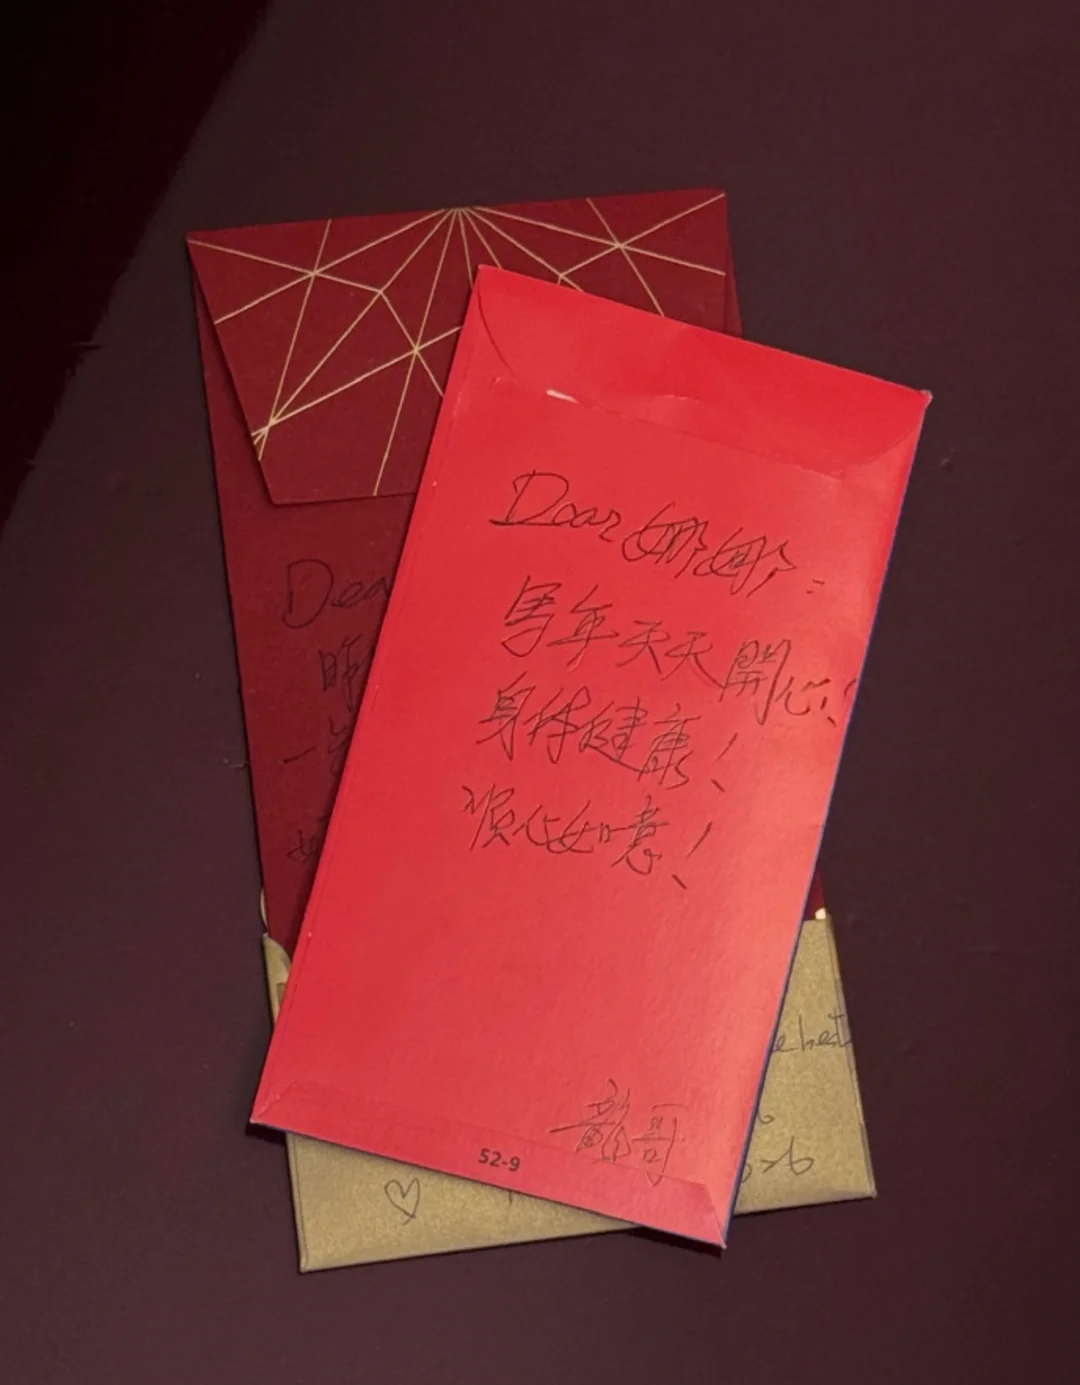 Dear 娜娜:
馬年天天開心!
身体健康!
顺心如意!
龍哥
52-9
Dea
昨
一